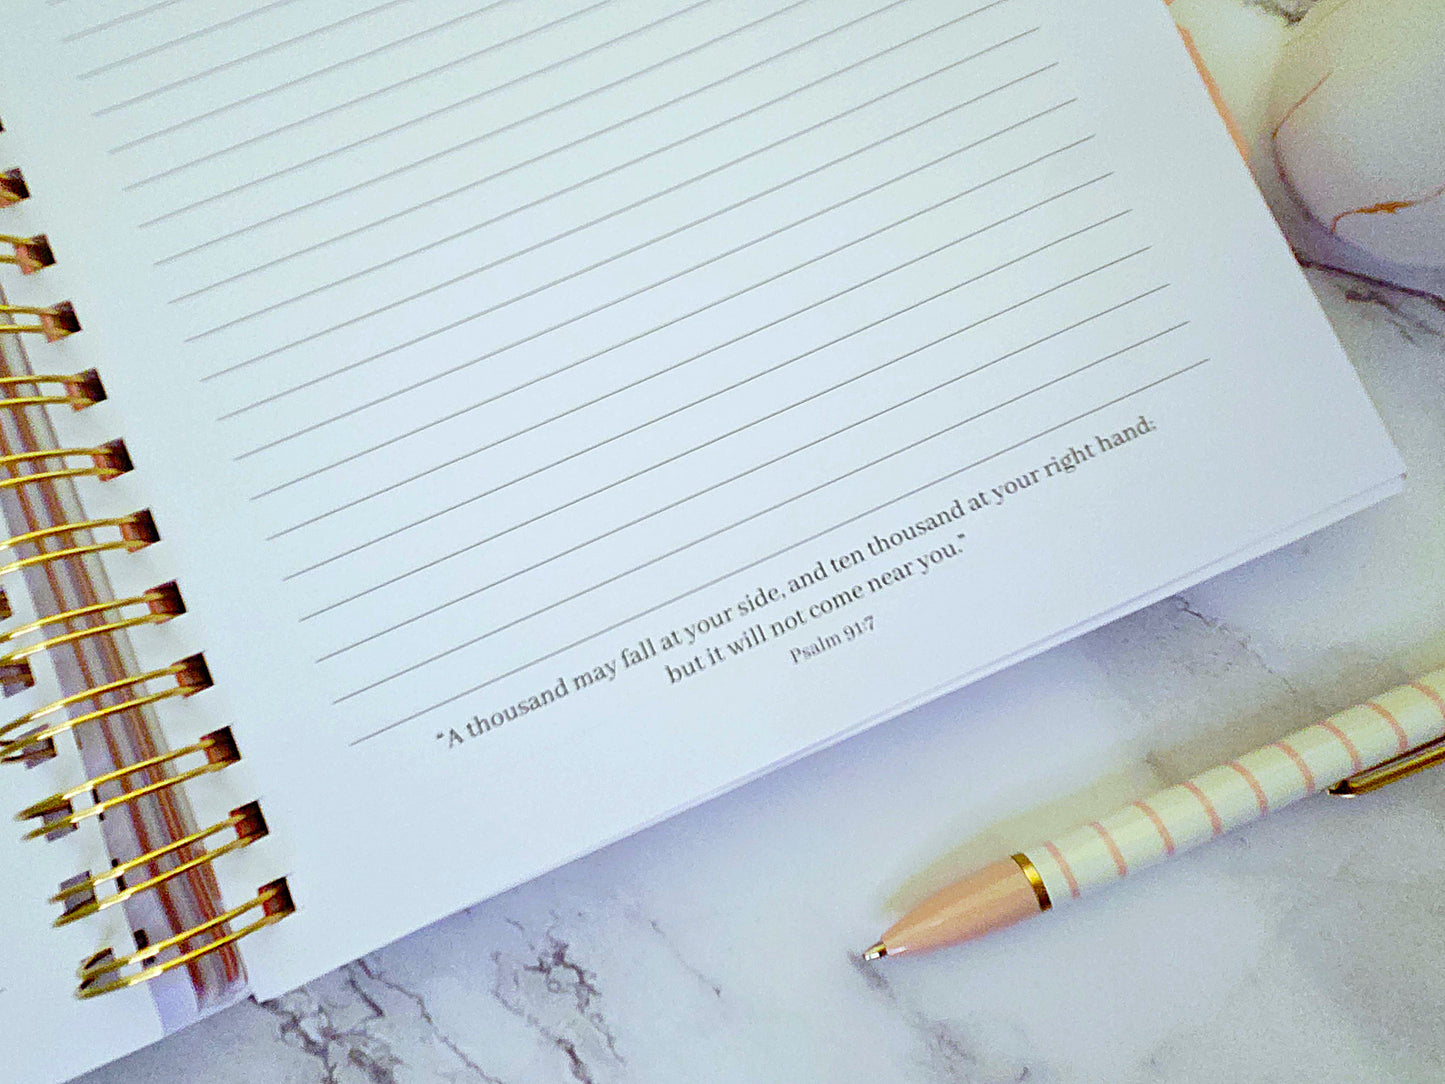 “A thousand may fall at your side, and ten thousand at your right hand;
but it will not come near you.”
Psalm 91:7